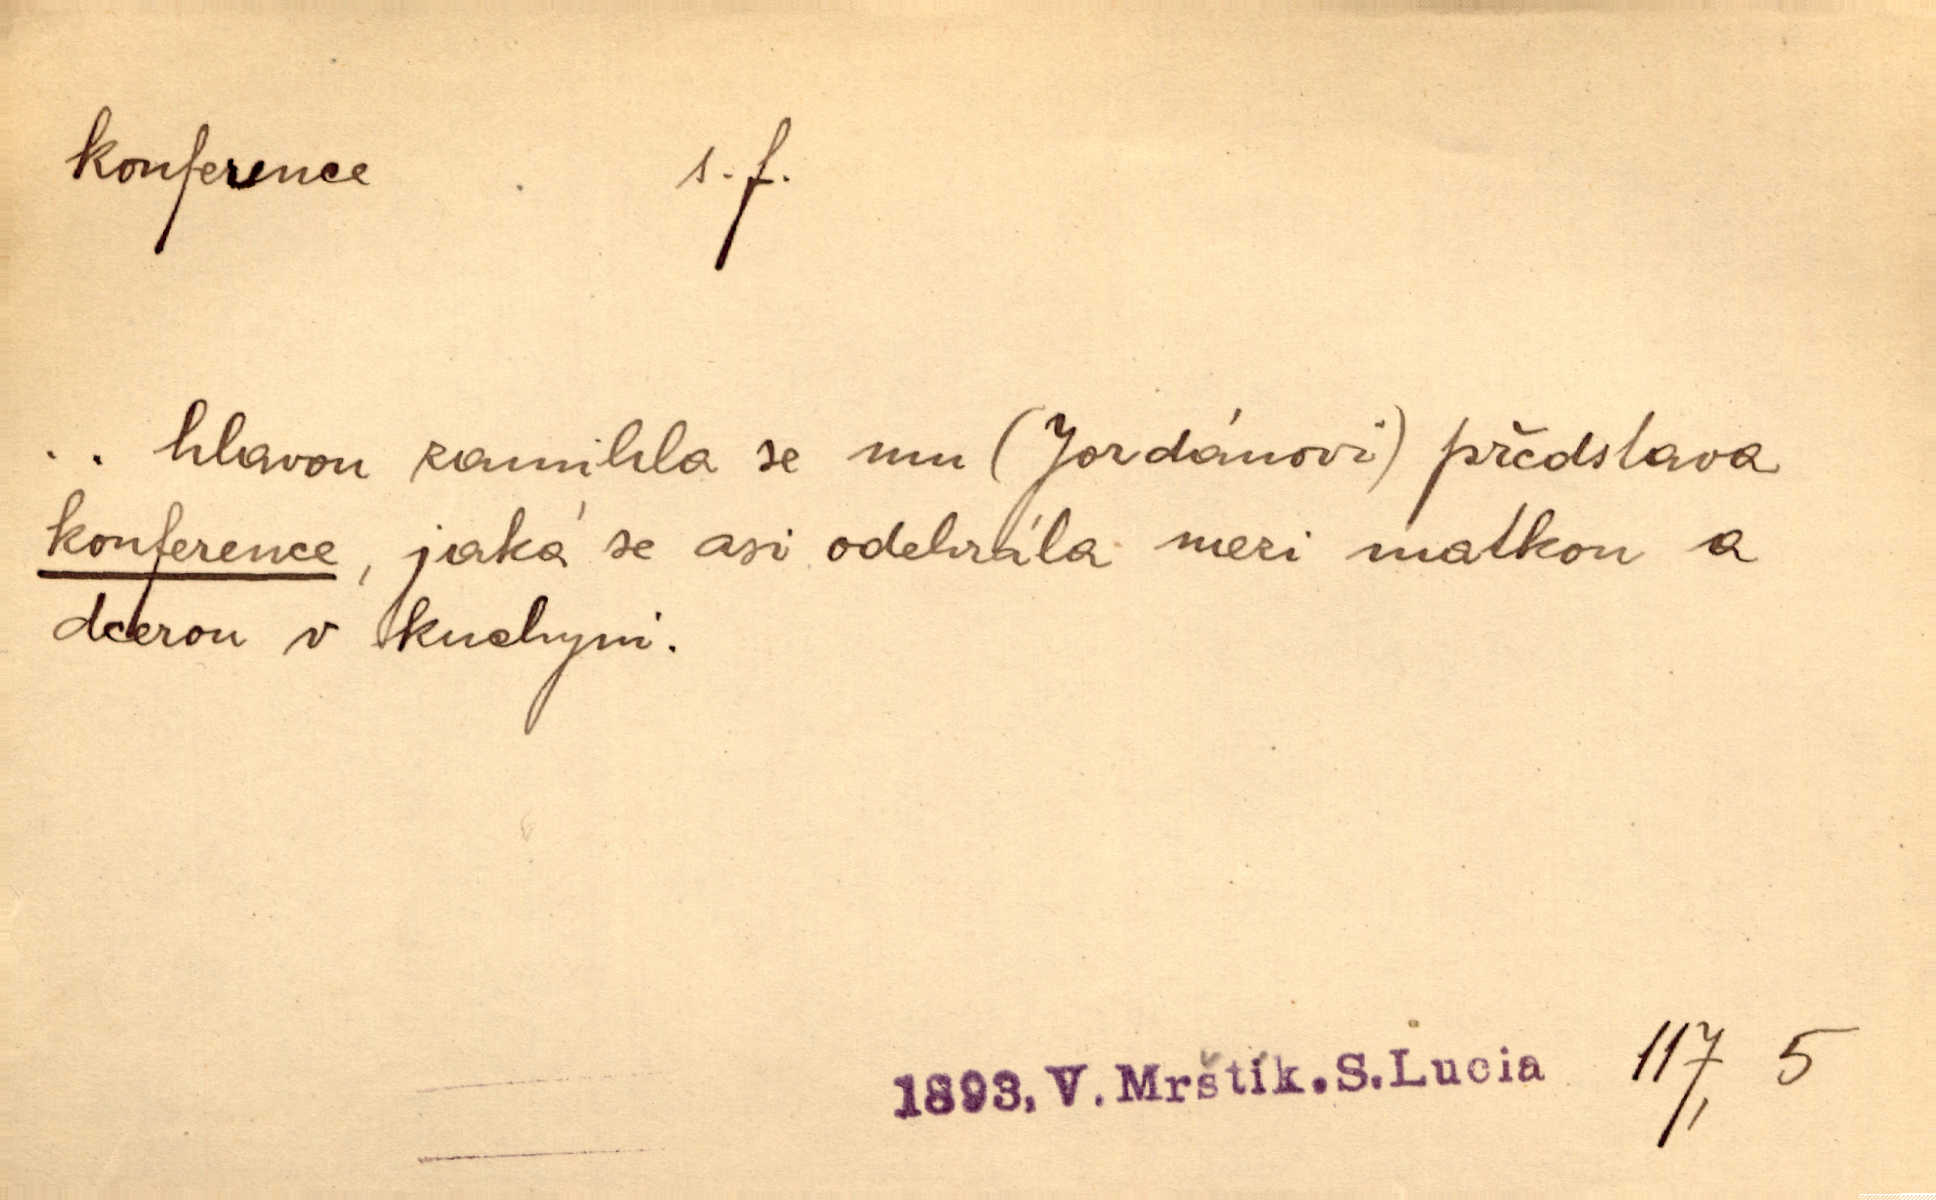 konference s.f.
.. hlavou zamihla se mu (Jordánovi) představa
konference, jaká se asi odehrála mezi matkou a
dcerou v kuchyni.
1893, V. Mrštík. S. Lucia 117, 5